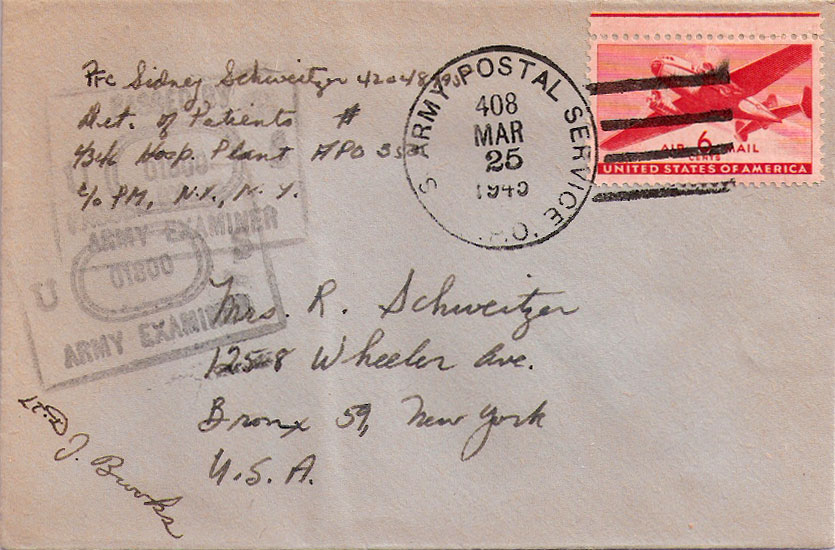 Pfc Sidney Schweitzer
Det. of Patients #
Hosp. Plant APO
c/o PM, N.Y., N.Y.
PASSED BY
U S
01800
ARMY EXAMINER
U S
01800
ARMY EXAMINER
S. ARMY POSTAL SERVICE
408
MAR
25
194
P.O.
AIR 6 MAIL
CENTS
UNITED STATES OF AMERICA
Mrs. R. Schweitzer
1258 Wheeler Ave.
Bronx 59, New York
U.S.A.
J. Brooks